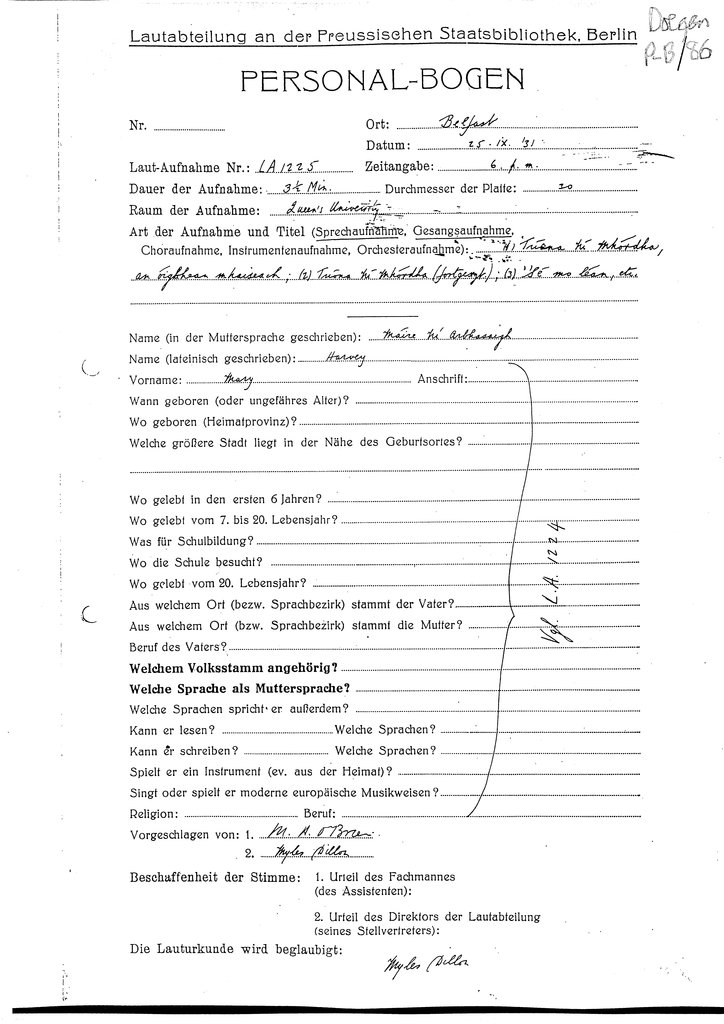 Doegen
P-B/86
Lautabteilung an der Preussischen Staatsbibliothek, Berlin
PERSONAL-BOGEN
Nr.
Ort: Belfast
Datum: 25. IX. '31
Laut-Aufnahme Nr.: LA 1225 Zeitangabe: 6. p.m.
Dauer der Aufnahme: 3½ Min. Durchmesser der Platte: 20
Raum der Aufnahme: Queen's University
Art der Aufnahme und Titel (Sprechaufnahme, Gesangsaufnahme,
Choraufnahme, Instrumentenaufnahme, Orchesteraufnahme): (1) Triona Ní Mhórdha,
an óigbhean mhaiseach; (2) Triona Ní Mhórdha (fortgesetzt); (3) 'Sé mo léan, etc.
Name (in der Muttersprache geschrieben): Máire Ní
Name (lateinisch geschrieben): Harvey
Vorname: Mary Anschrift:
Wann geboren (oder ungefähres Alter)?
Wo geboren (Heimatprovinz)?
Welche größere Stadt liegt in der Nähe des Geburtsortes?
Wo gelebt in den ersten 6 Jahren?
Wo gelebt vom 7. bis 20. Lebensjahr?
Was für Schulbildung?
Wo die Schule besucht?
Wo gelebt vom 20. Lebensjahr?
Aus welchem Ort (bezw. Sprachbezirk) stammt der Vater?
Aus welchem Ort (bzw. Sprachbezirk) stammt die Mutter?
Beruf des Vaters?
Welchem Volksstamm angehörig?
Welche Sprache als Muttersprache?
Welche Sprachen spricht er außerdem?
Kann er lesen? Welche Sprachen?
Kann er schreiben? Welche Sprachen?
Spielt er ein Instrument (ev. aus der Heimat)?
Singt oder spielt er moderne europäische Musikweisen?
Religion: Beruf:
Vgl. L.A. 1224
Vorgeschlagen von: 1. M. A. O'Brien
2. Myles Dillon
Beschaffenheit der Stimme: 1. Urteil des Fachmannes
(des Assistenten):
2. Urteil des Direktors der Lautabteilung
(seines Stellvertreters):
Die Lauturkunde wird beglaubigt:
Myles Dillon